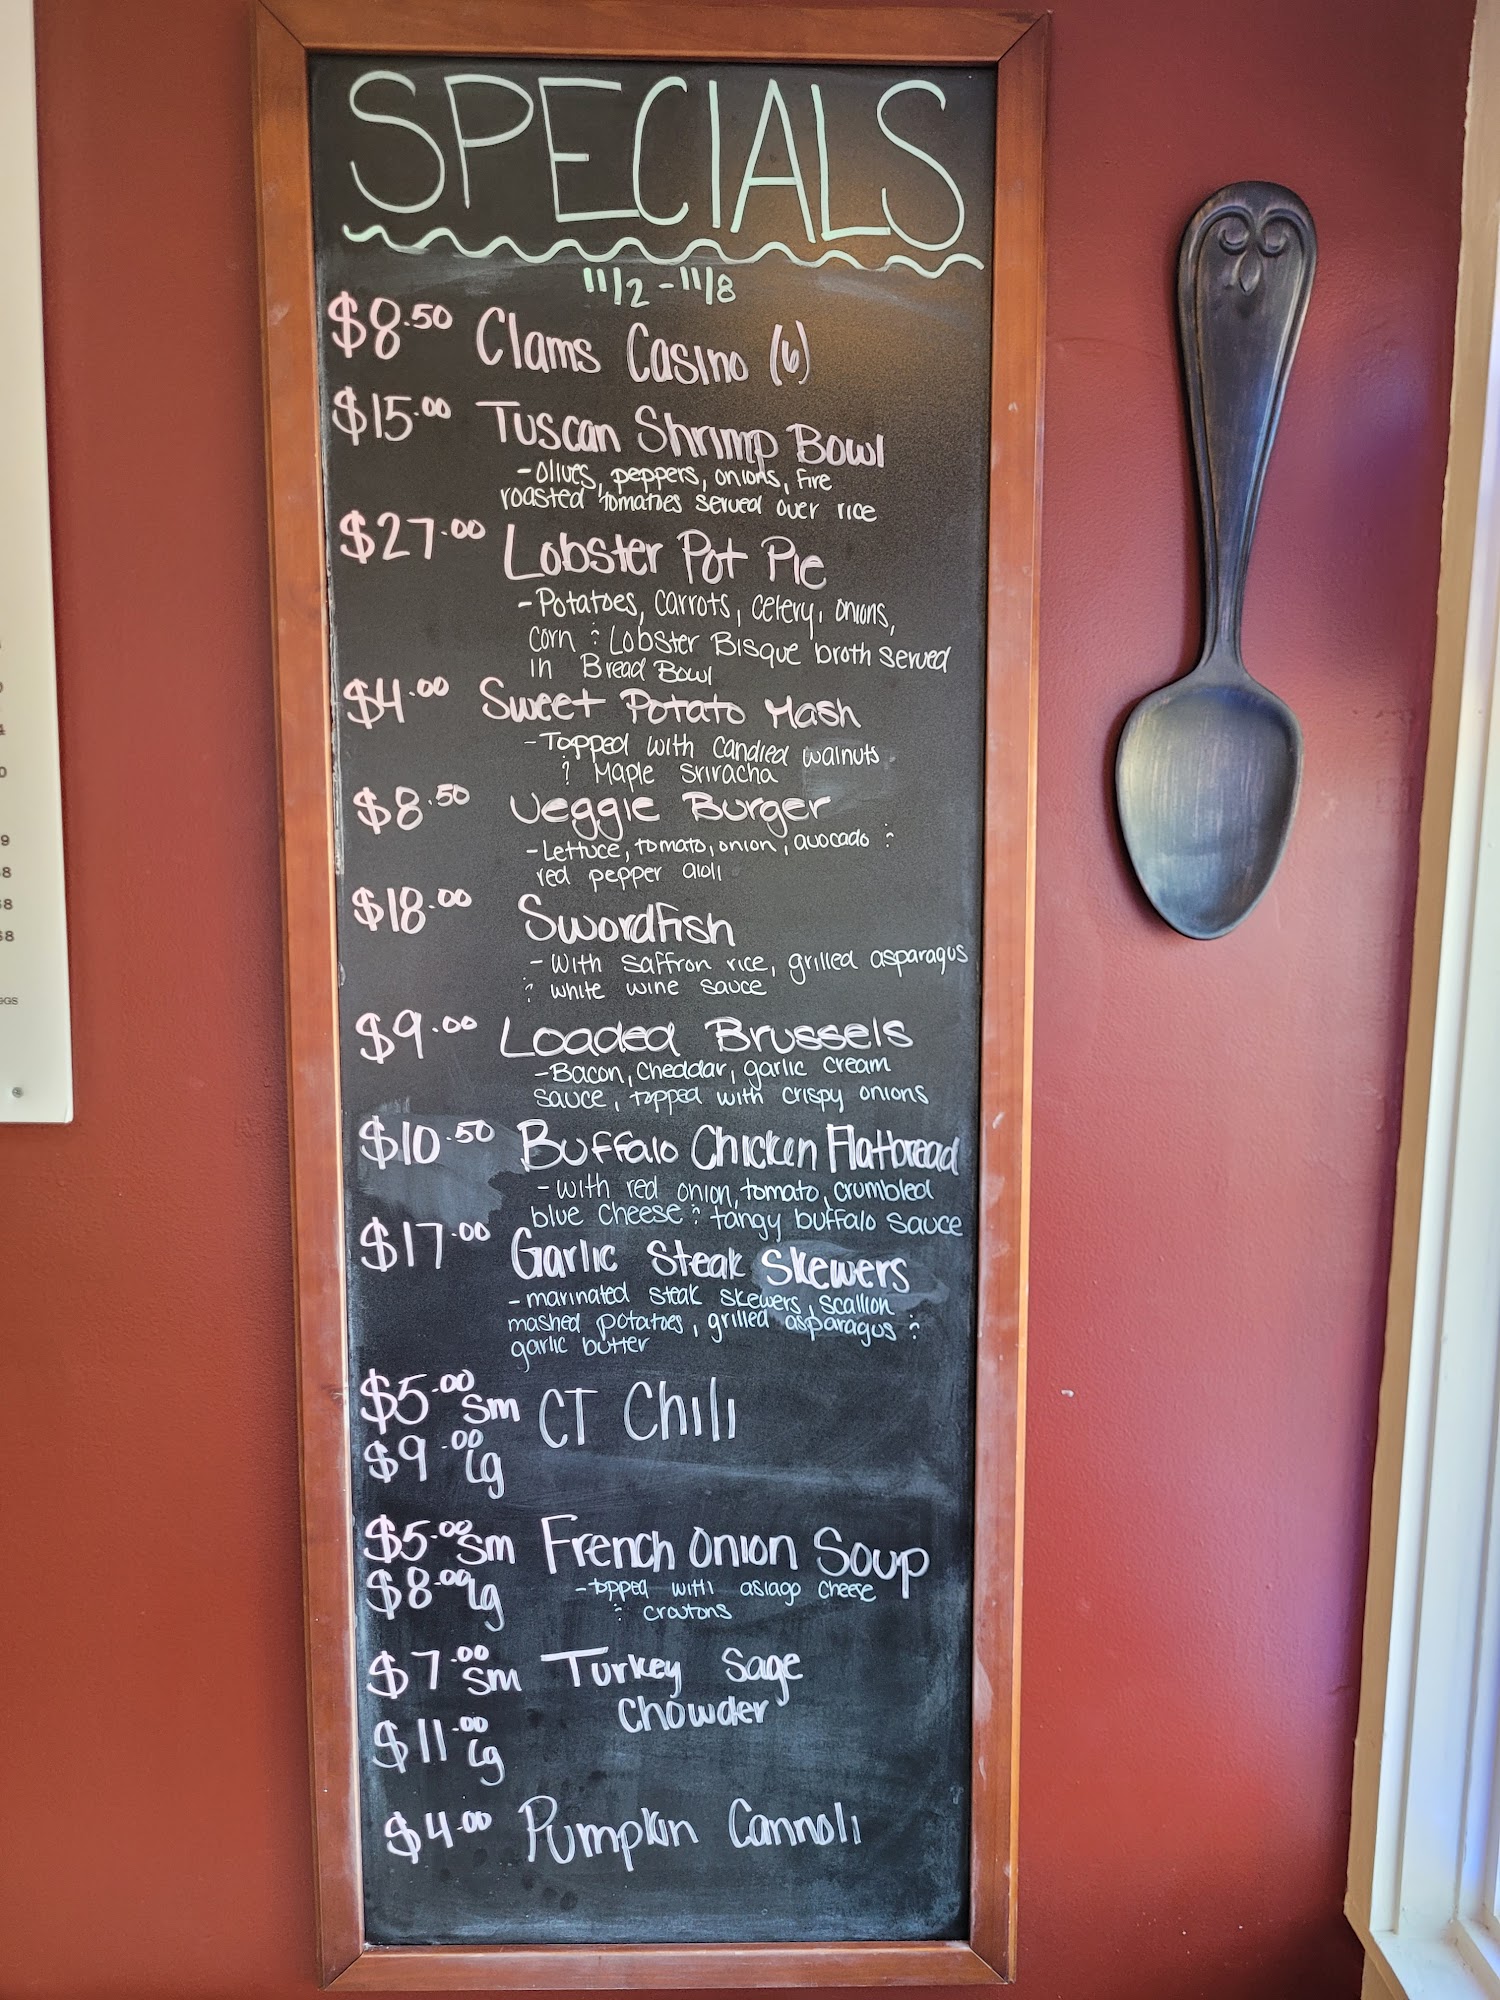 SPECIALS
11/2 - 11/8
$8.50 Clams Casino (6)
$15.00 Tuscan Shrimp Bowl
- olives, peppers, onions, fire
roasted tomatoes served over rice
$27.00 Lobster Pot Pie
- Potatoes, carrots, celery, onions,
corn & Lobster Bisque broth served
in Bread Bowl
$4.00 Sweet Potato Mash
- Topped with candied walnuts
& Maple Sriracha
$8.50 Veggie Burger
- Lettuce, tomato, onion, avocado &
red pepper aioli
$18.00 Swordfish
- with saffron rice, grilled asparagus
& white wine sauce
$9.00 Loaded Brussels
- Bacon, cheddar, garlic cream
sauce, topped with crispy onions
$10.50 Buffalo Chicken Flatbread
- with red onion, tomato, crumbled
blue cheese & tangy buffalo sauce
$17.00 Garlic Steak Skewers
- marinated steak skewers, scallion
mashed potatoes, grilled asparagus &
garlic butter
$5.00 sm CT Chili
$9.00 lg
$5.00 sm French Onion Soup
$8.00 lg
- topped with asiago cheese
& croutons
$7.00 sm Turkey Sage
Chowder
$11.00 lg
$4.00 Pumpkin Cannoli